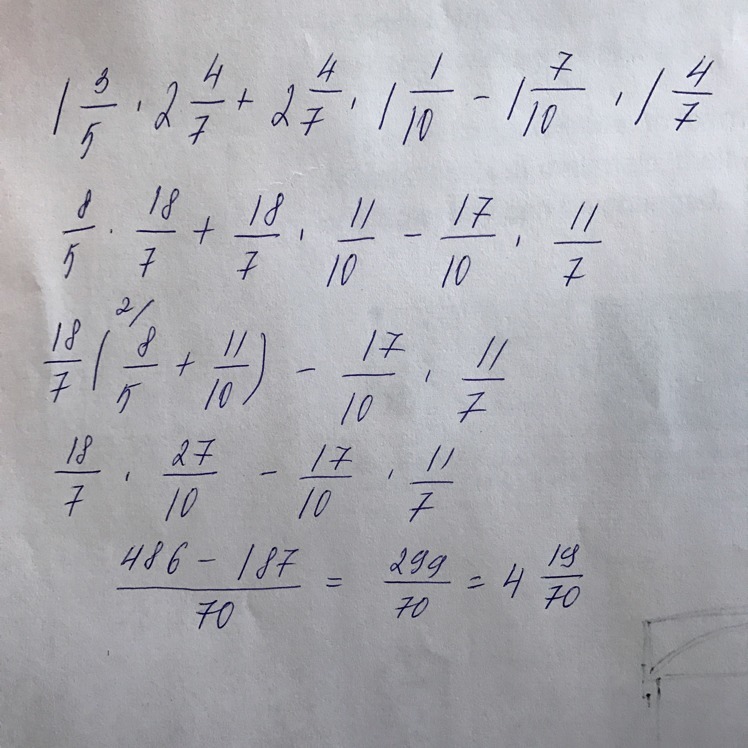 1 3/5 · 2 4/7 + 2 4/7 · 1 1/10 - 1 7/10 · 1 4/7
8/5 · 18/7 + 18/7 · 11/10 - 17/10 · 11/7
18/7 ( 2/ 8/5 + 11/10 ) - 17/10 · 11/7
18/7 · 27/10 - 17/10 · 11/7
486 - 187/70 = 299/70 = 4 19/70